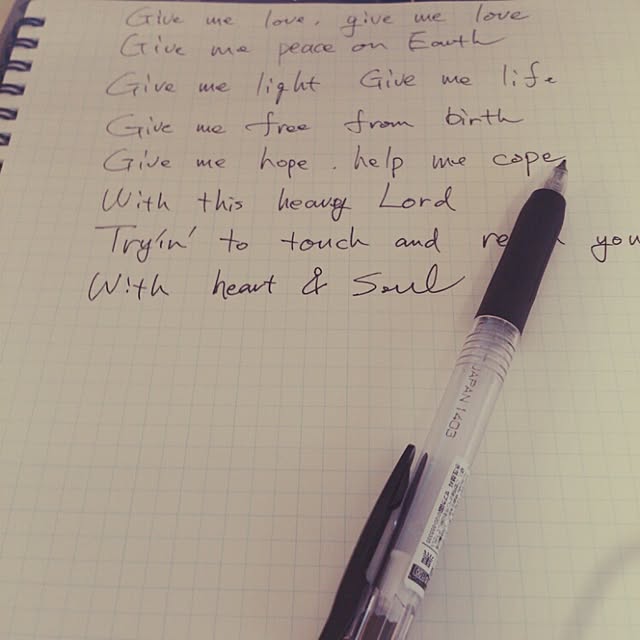 Give me love. give me love
Give me peace on Earth
Give me light Give me life
Give me free from birth
Give me hope. help me cope
With this heavy Lord
Tryin' to touch and you
With heart & Soul
JAPAN 1403
黒